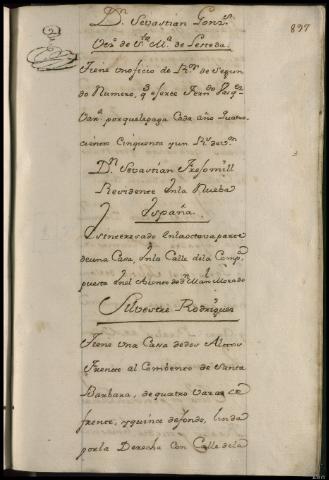 897
Dn. Sevastian Gonzs.
Veco. de Sta. Ma. de Lesteda
Tiene un oficio de Rn. de segun
do Numero, q. exerce Ferndo.
Vara. porque le paga Cada año quatro
cientos Cinquenta y un Rs. de Vn.
Dn. Sevastian
Residente Enla Nueba
España
Es interesado Enla octava parte
de una Casa, Enla Calle dela Compa.
puesta Enel Abienco dedn. Manl. Morado
Silvestre Rodriguez
Tiene una Casa de dos Altos
Frente al Combento de Santa
Barbara, de quatro Varas de
frente, y quince de fondo, linda
por la Derecha con Calle dela